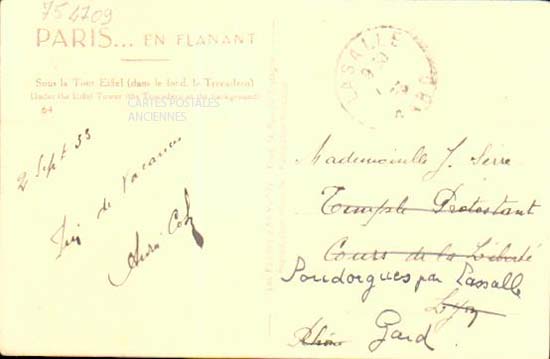 75 4709
PARIS... EN FLANANT
Sous la Tour Eiffel (dans le fond, le Trocadéro)
(Under the Eiffel Tower (the Trocadero at the background)
64
CARTES POSTALES
ANCIENNES
2 Sept 33
Fin de vacances
André
LASALLE
Mademoiselle J. Serre
Temple Protestant
Cours de la Liberté
Soudorgues par Lassalle
Lyon
Rhône Gard